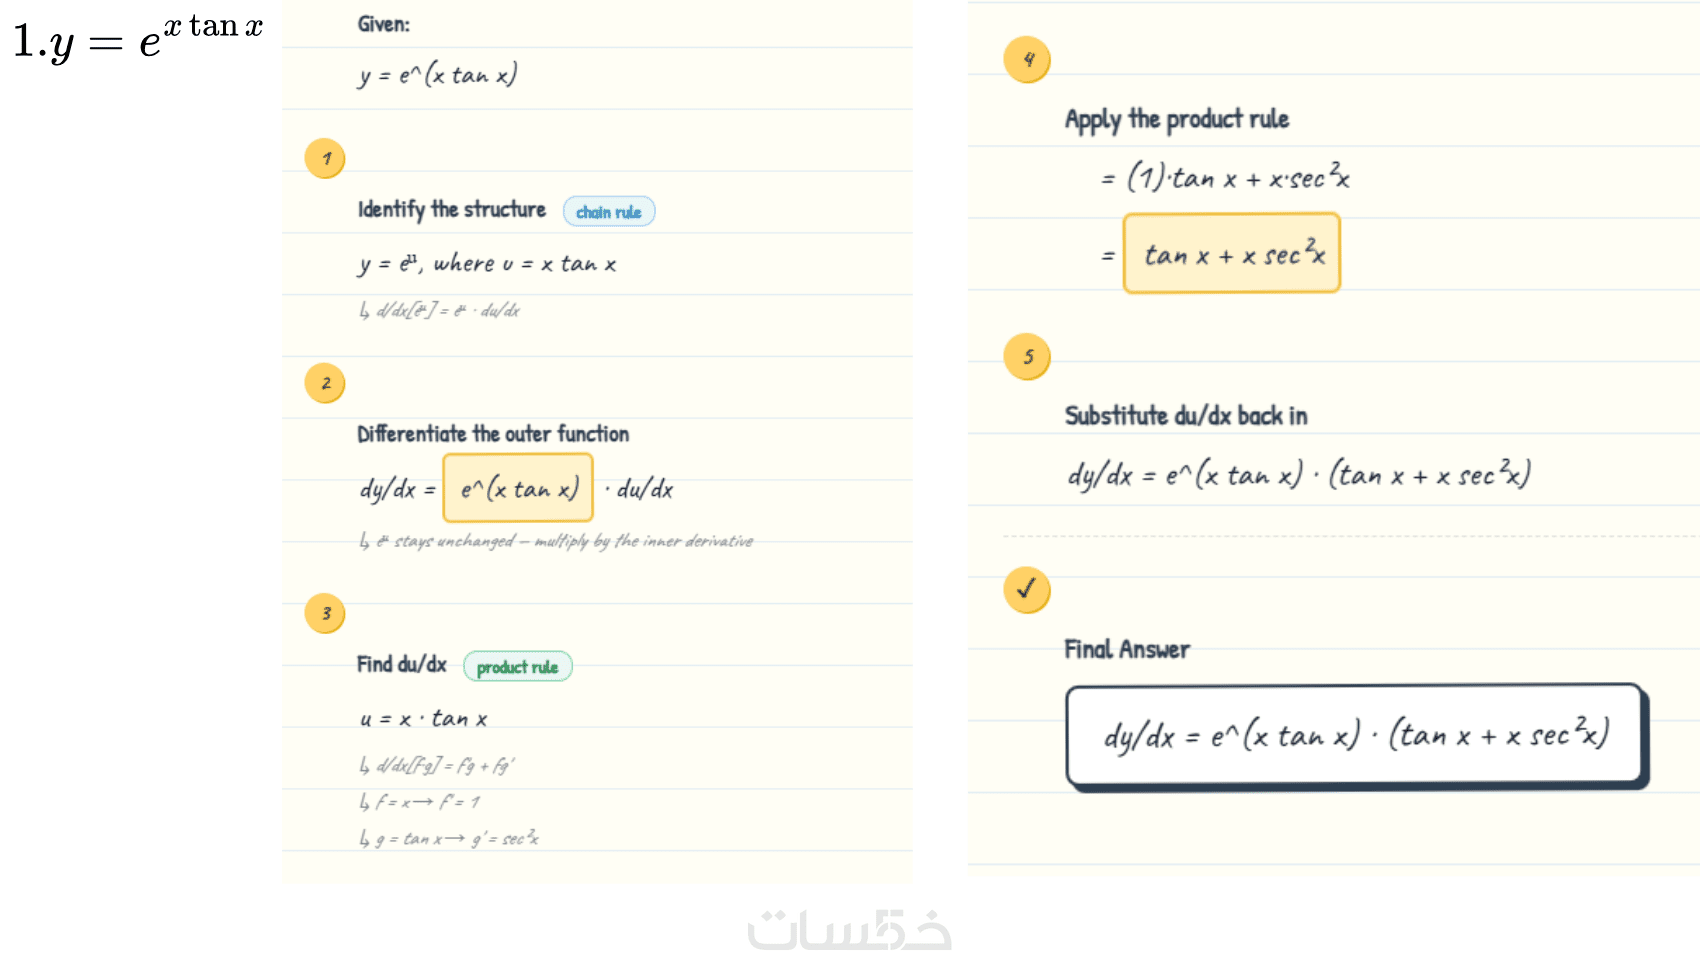 1.y = e^{x tan x}
Given:
y = e^(x tan x)
1
Identify the structure chain rule
y = eᵘ, where u = x tan x
↳ d/dx[eᵘ] = eᵘ · du/dx
2
Differentiate the outer function
dy/dx = e^(x tan x) · du/dx
↳ eᵘ stays unchanged — multiply by the inner derivative
3
Find du/dx product rule
u = x · tan x
↳ d/dx[fg] = f'g + fg'
↳ f = x → f' = 1
↳ g = tan x → g' = sec²x
4
Apply the product rule
= (1)·tan x + x·sec²x
= tan x + x sec²x
5
Substitute du/dx back in
dy/dx = e^(x tan x) · (tan x + x sec²x)
✓
Final Answer
dy/dx = e^(x tan x) · (tan x + x sec²x)
خمسات